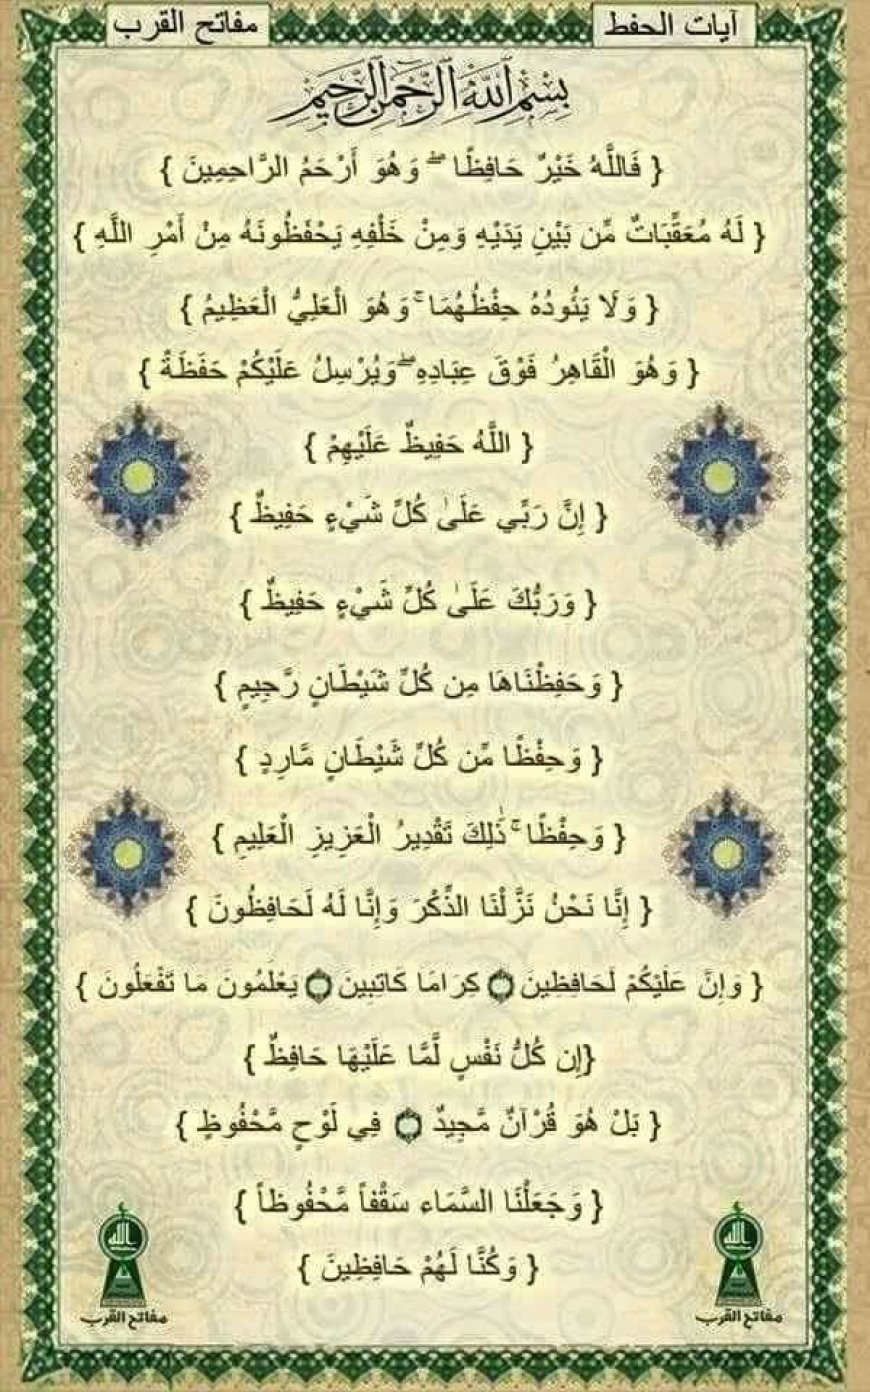 آيات الحفظ
مفاتح القرب
بِسْمِ اللَّهِ الرَّحْمَنِ الرَّحِيمِ
{ فَاللَّهُ خَيْرٌ حَافِظًا ۖ وَهُوَ أَرْحَمُ الرَّاحِمِينَ }
{ لَهُ مُعَقِّبَاتٌ مِّن بَيْنِ يَدَيْهِ وَمِنْ خَلْفِهِ يَحْفَظُونَهُ مِنْ أَمْرِ اللَّهِ }
{ وَلَا يَئُودُهُ حِفْظُهُمَا ۚ وَهُوَ الْعَلِيُّ الْعَظِيمُ }
{ وَهُوَ الْقَاهِرُ فَوْقَ عِبَادِهِ ۖ وَيُرْسِلُ عَلَيْكُمْ حَفَظَةً }
{ اللَّهُ حَفِيظٌ عَلَيْهِمْ }
{ إِنَّ رَبِّي عَلَىٰ كُلِّ شَيْءٍ حَفِيظٌ }
{ وَرَبُّكَ عَلَىٰ كُلِّ شَيْءٍ حَفِيظٌ }
{ وَحَفِظْنَاهَا مِن كُلِّ شَيْطَانٍ رَّجِيمٍ }
{ وَحِفْظًا مِّن كُلِّ شَيْطَانٍ مَّارِدٍ }
{ وَحِفْظًا ۚ ذَٰلِكَ تَقْدِيرُ الْعَزِيزِ الْعَلِيمِ }
{ إِنَّا نَحْنُ نَزَّلْنَا الذِّكْرَ وَإِنَّا لَهُ لَحَافِظُونَ }
{ وَإِنَّ عَلَيْكُمْ لَحَافِظِينَ ۝ كِرَامًا كَاتِبِينَ ۝ يَعْلَمُونَ مَا تَفْعَلُونَ }
{إِن كُلُّ نَفْسٍ لَّمَّا عَلَيْهَا حَافِظٌ }
{ بَلْ هُوَ قُرْآنٌ مَّجِيدٌ ۝ فِي لَوْحٍ مَّحْفُوظٍ }
{ وَجَعَلْنَا السَّمَاء سَقْفاً مَّحْفُوظاً }
{ وَكُنَّا لَهُمْ حَافِظِينَ }
الله
الله
مفاتح القرب
مفاتح القرب